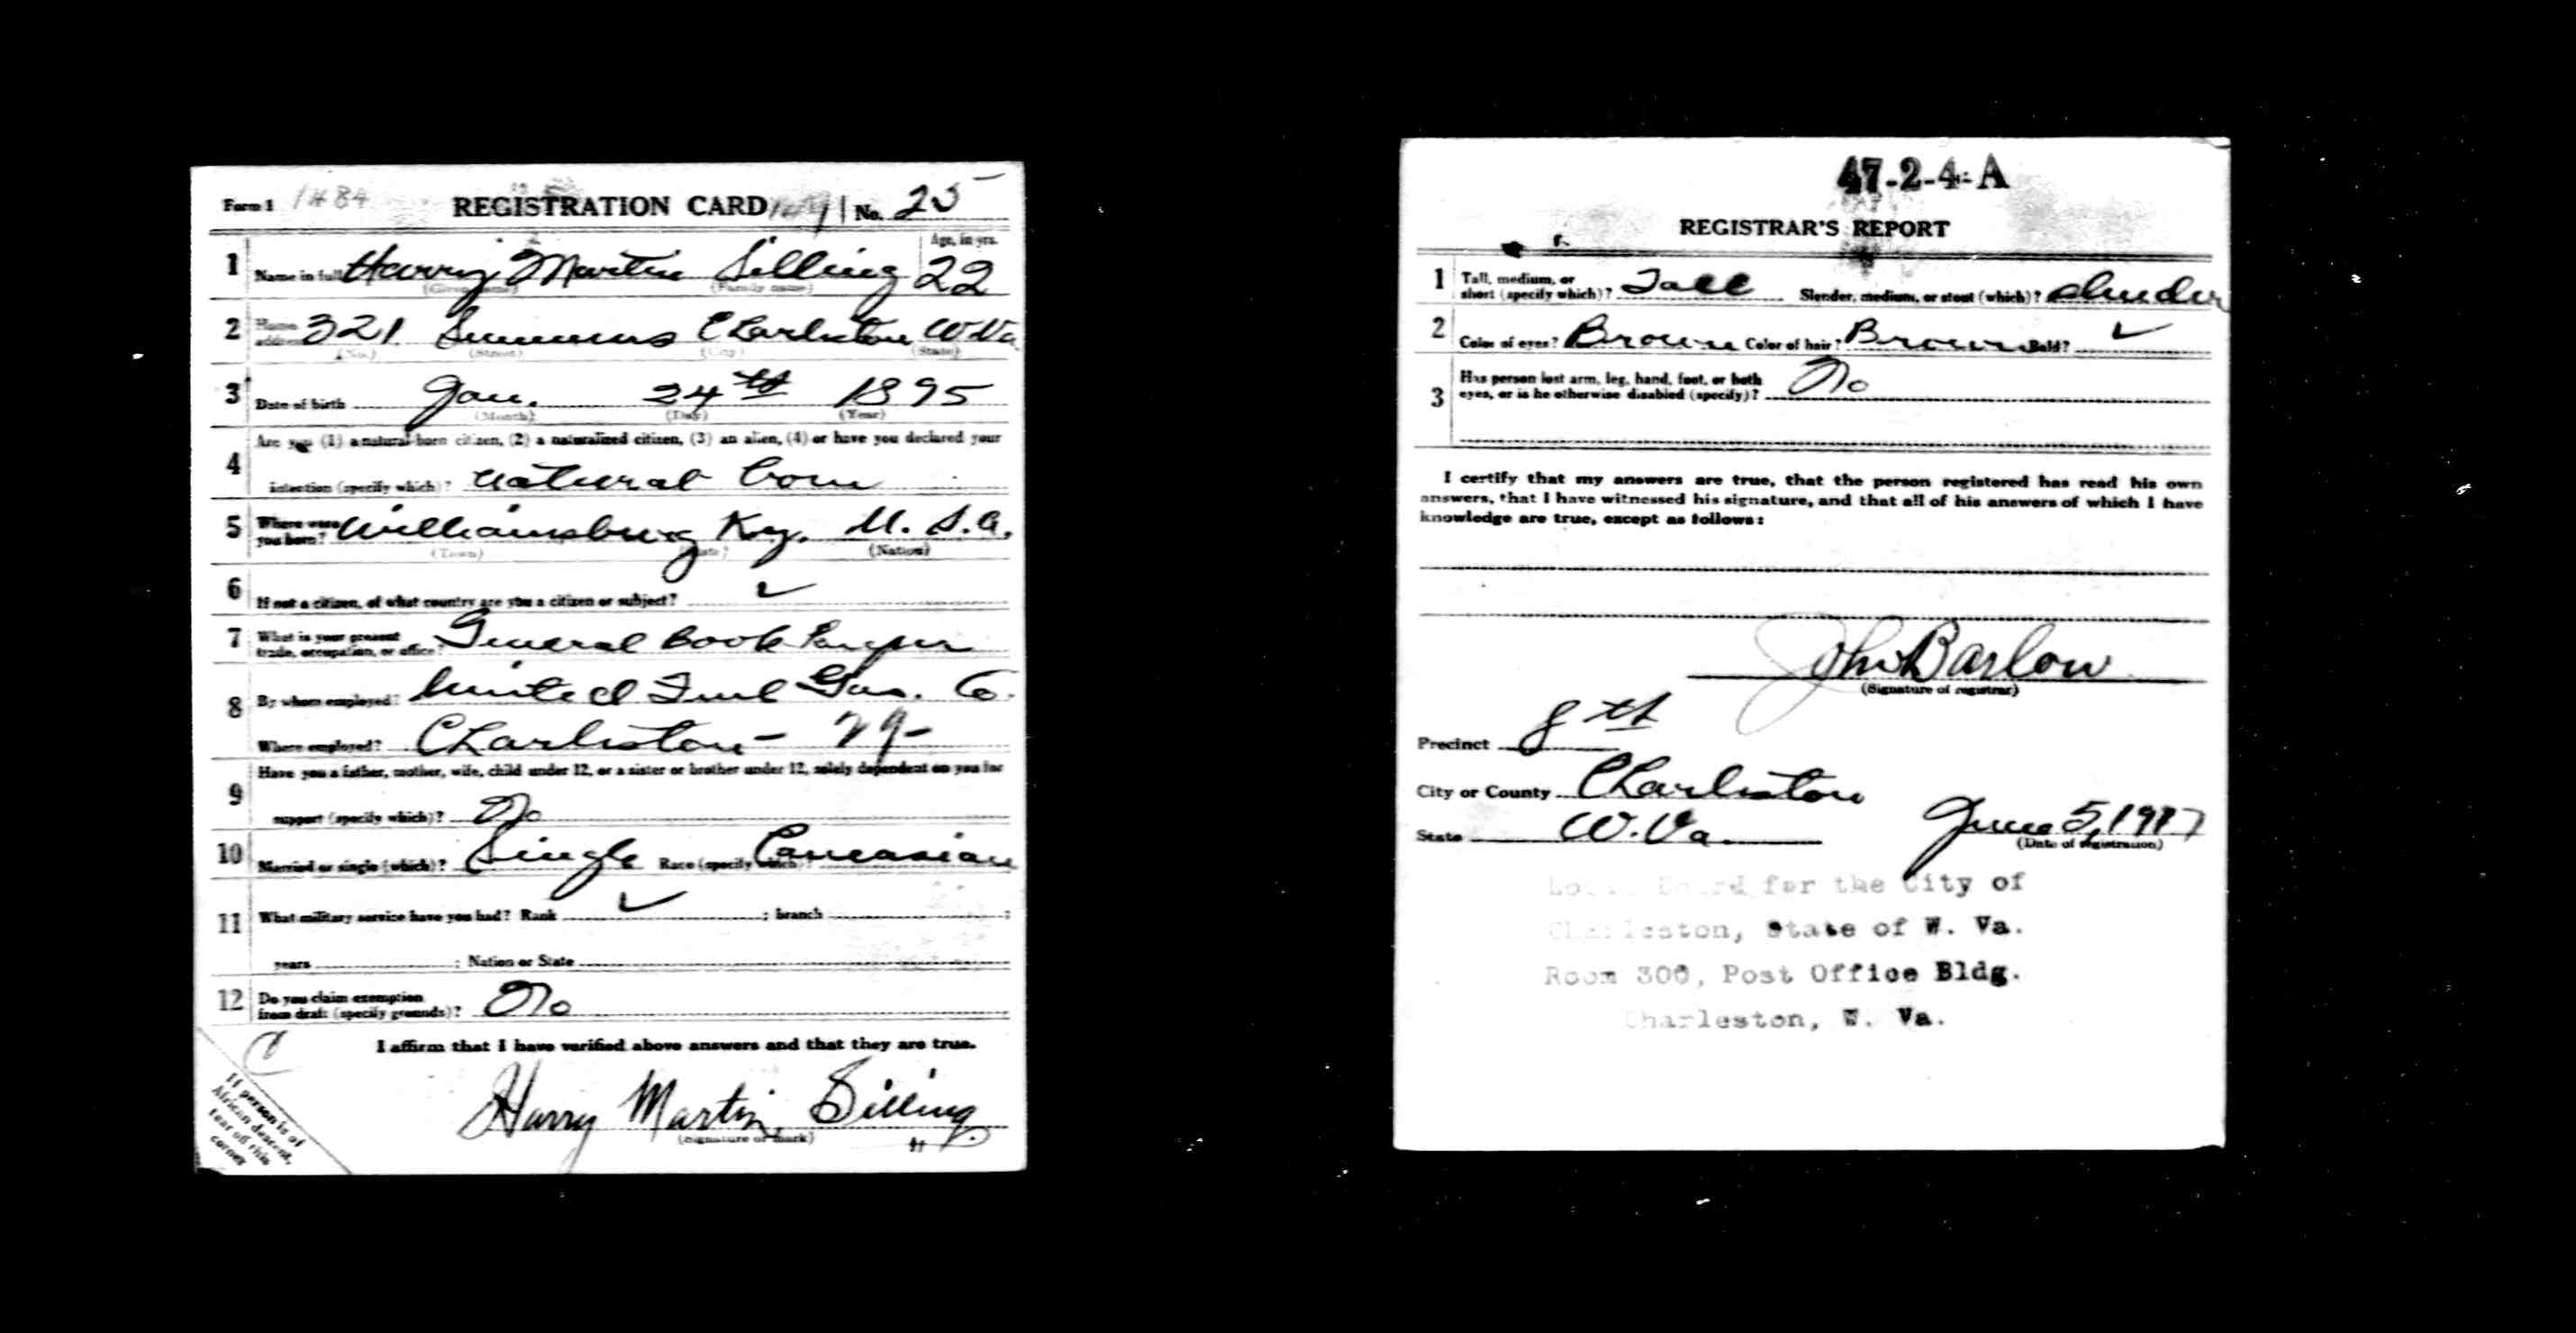 Form 1 1484 REGISTRATION CARD No. 25
Age, in yrs.
1 Name in full Harry Martin Silling 22
(Given name) (Family name)
2 Home address 321 Summers Charleston W.Va
(No.) (Street) (City) (State)
3 Date of birth Jan. 24th 1895
(Month) (Day) (Year)
4 Are you (1) a natural-born citizen, (2) a naturalized citizen, (3) an alien, (4) or have you declared your
intention (specify which)? natural born
5 Where were you born? Williamsburg Ky. U.S.A.
(Town) (State) (Nation)
6 If not a citizen, of what country are you a citizen or subject? ✓
7 What is your present trade, occupation, or office? General Book Keeper
8 By whom employed? United Fuel Gas. Co.
Where employed? Charleston -
9 Have you a father, mother, wife, child under 12, or a sister or brother under 12, solely dependent on you for
support (specify which)? No
10 Married or single (which)? Single Race (specify which)? Caucasian
11 What military service have you had? Rank ✓ ; branch ;
years ; Nation or State
12 Do you claim exemption from draft (specify grounds)? No
I affirm that I have verified above answers and that they are true.
Harry Martin Silling
(Signature or mark)
If person is of
African descent,
tear off this
corner
47-2-4-A
REGISTRAR'S REPORT
1 Tall, medium, or short (specify which)? Tall Slender, medium, or stout (which)? Slender
2 Color of eyes? Brown Color of hair? Brown Bald? ✓
3 Has person lost arm, leg, hand, foot, or both eyes, or is he otherwise disabled (specify)? No
I certify that my answers are true, that the person registered has read his own
answers, that I have witnessed his signature, and that all of his answers of which I have
knowledge are true, except as follows:
John Barlow
(Signature of registrar)
Precinct 8th
City or County Charleston
State W.Va. June 5, 1917
(Date of registration)
Local Board for the City of
Charleston, State of W. Va.
Room 300, Post Office Bldg.
Charleston, W. Va.